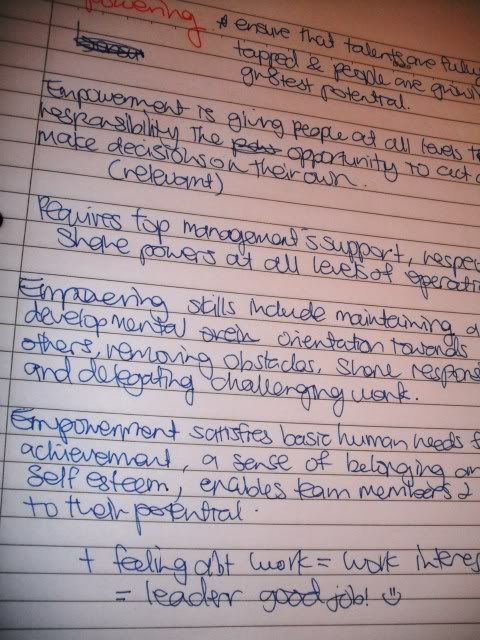 powering * ensure that talents are fully
tapped & people are grow
gr8test potential.
Empowerment is giving people at all levels t
responsibility the opportunity to act
make decisions on their own.
(relevant)
Requires top management's support, respe
share powers at all levels of operati
Empowering skills include maintaining a
developmental orientation towards
others, removing obstacles, share respons
and delegating challenging work.
Empowerment satisfies basic human needs f
achievement, a sense of belonging an
self esteem, enables team members 2
to their potential.
+ feeling abt work = work interes
= leader good job! ☺